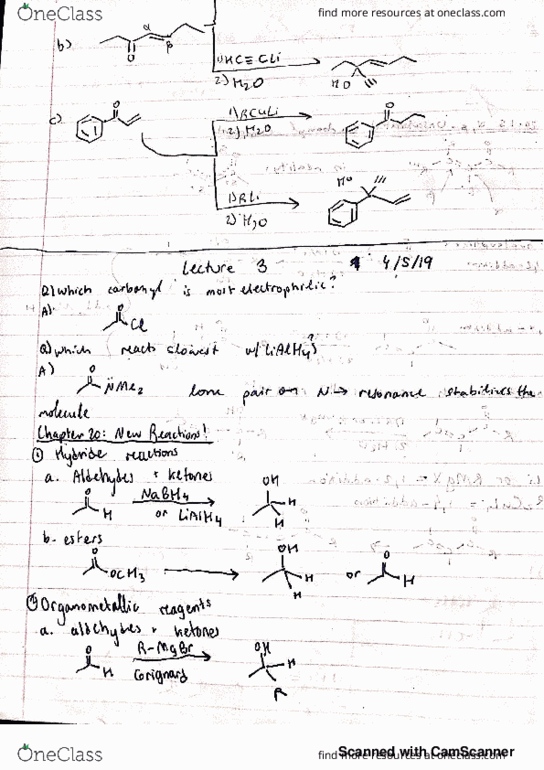 OneClass
find more resources at oneclass.com
α
b)
O
β
1) HC≡CLi
2) H2O
HO
c)
O
1) RCuLi
2) H2O
O
HO
1) RLi
2) H2O
Lecture 3 4/5/19
Q) which carbonyl is most electrophilic?
A)
O
Cl
Q) which reacts slowest w/ LiAlH4?
A)
O
NMe2 lone pair on N → resonance stabilizes the
molecule
Chapter 20: New Reactions!
① Hydride reactions
a. Aldehydes + ketones
O
H
NaBH4
or LiAlH4
OH
H
H
b. esters
O
OCH3
OH
H
H
or
O
H
Organometallic reagents
a. aldehydes + ketones
O
H
R-MgBr
Grignard
OH
H
R
OneClass
find more resources at oneclass.com
Scanned with CamScanner